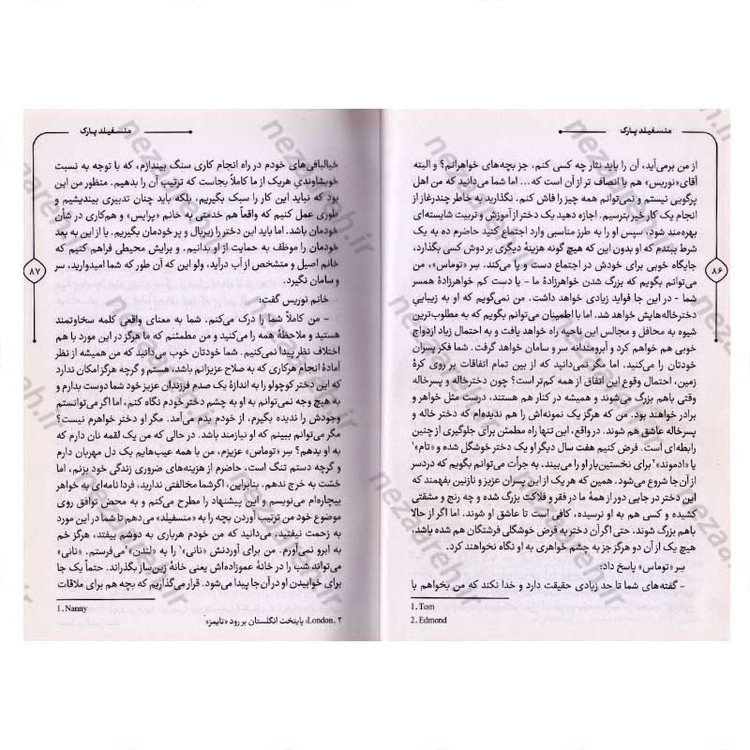 منسفیلد پارک
از من برمی‌آید، آن را باید نثار چه کسی کنم، جز بچه‌های خواهرانم؟ و البته
آقای «نوریس» هم با انصاف تر از آن است که... اما شما می‌دانید که من اهل
پرگویی نیستم و نمی‌توانم همه چیز را فاش کنم. نگذارید به خاطر چندرغاز از
انجام یک کار خیر بترسیم. اجازه دهید یک دختر از آموزش و تربیت شایسته‌ای
بهره‌مند شود، سپس او را به طرز مناسبی وارد اجتماع کنید حاضرم ده به یک
شرط ببندم که او بدون این که هیچ گونه هزینهٔ دیگری بر دوش کسی بگذارد،
جایگاه خوبی برای خودش در اجتماع دست و پا می‌کند. سِر «توماس»، من
می‌توانم بگویم که بزرگ شدن خواهرزادهٔ ما - یا دست کم خواهرزاده همسر
شما - در این جا فواید زیادی خواهد داشت. من نمی‌گویم که او به زیباییِ
دخترخاله‌هایش خواهد شد. اما با اطمینان می‌توانم بگویم که به مطلوب‌ترین
شیوه به محافل و مجالس این ناحیه راه خواهد یافت و به احتمال زیاد ازدواج
خوبی هم خواهم کرد و آبرومندانه سر و سامان خواهد گرفت. شما فکر پسران
خودتان را می‌کنید. اما مگر نمی‌دانید که از بین تمام اتفاقات بر روی کرهٔ
زمین، احتمال وقوع این اتفاق از همه کم‌تر است؟ چون دخترخاله و پسرخاله
وقتی باهم بزرگ می‌شوند و همیشه در کنار هم هستند، درست مثل خواهر و
برادر خواهند بود. من که هرگز یک نمونه‌اش را هم ندیده‌ام که دختر خاله و
پسرخاله عاشق هم شوند. در واقع، این تنها راه مطمئن برای جلوگیری از چنین
رابطه‌ای است. فرض کنیم هفت سال دیگر او یک دختر خوشگل شده و «تام»۱
یا «ادموند»۲ برای نخستین‌بار او را می‌بیند. به جرأت می‌توانم بگویم که دردسر
از آن جا شروع می‌شود. همین که هر یک از این پسران عزیز و نازنین بفهمند که
این دختر در جایی دور از همهٔ ما در فقر و فلاکت بزرگ شده و چه رنج و مشقتی
کشیده و کسی هم به او نرسیده، کافی است تا عاشق او شوند. اما اگر از حالا
باهم بزرگ شوند. حتی اگر آن دختر به فرض خوشگلی فرشتگان هم شده باشد،
هیچ یک از آن دو هرگز جز به چشم خواهری به او نگاه نخواهند کرد.
سِر «توماس» پاسخ داد:
- گفته‌های شما تا حد زیادی حقیقت دارد و خدا نکند که من بخواهم با
1. Tom
2. Edmond
۸۶
منسفیلد پارک
خیالبافی‌های خودم در راه انجام کاری سنگ بیندازم، که با توجه به نسبت
خویشاوندی هریک از ما کاملاً بجاست که ترتیب آن را بدهیم. منظور من این
بود که نباید این کار را سبک بگیریم، بلکه باید چنان تدبیری بیندیشیم و
طوری عمل کنیم که واقعاً هم خدمتی به خانم «پرایس» و هم‌کاری در شأن
خودمان باشد. اما باید این دختر را زیربال و پر خودمان بگیریم. یا از این به بعد
خودمان را موظف به حمایت از او بدانیم. و برایش محیطی فراهم کنیم که
خانم اصیل و متشخص از آب درآید، ولو این که آن طور که شما امیدوارید، سر
و سامان نگیرد.
خانم نوریس گفت:
- من کاملاً شما را درک می‌کنم. شما به معنای واقعی کلمه سخاوتمند
هستید و ملاحظهٔ همه را می‌کنید و من مطمئنم که ما هرگز در این مورد با هم
اختلاف نظر پیدا نمی‌کنیم. شما خودتان خوب می‌دانید که من همیشه از نظر
آمادهٔ انجام هرکاری که به صلاح عزیزانم باشد، هستم و هرگز هرگز امکان ندارد
که این دختر کوچولو را به اندازهٔ یک صدم فرزندان عزیز خود شما دوست بدارم و
به هیچ وجه نمی‌توانم به او به چشم دختر خودم نگاه کنم، اما اگر می‌توانستم
وجودش را ندیده بگیرم، از خودم بدم می‌آمد. مگر او دختر خواهرم نیست؟
مگر می‌توانم ببینم که او نیازمند باشد. در حالی که من یک لقمه نان دارم که
به او بدهم؟ سِر «توماس» عزیزم، من با همه عیب‌هایم یک دل مهربان دارم
و گرچه دستم تنگ است، حاضرم از هزینه‌های ضروری زندگی خود بزنم، اما
خست به خرج ندهم. بنابراین، اگر شما مخالفتی ندارید، فردا نامه‌ای به خواهر
بیچاره‌ام می‌نویسم و این پیشنهاد را مطرح می‌کنم و به محض توافق روی
موضوع خود من ترتیب آوردن بچه را به «منسفیلد» می‌دهم تا شما در این مورد
به زحمت نیفتید، می‌دانید که من خودم هرباری به دوشم بیفتد، هرگز خم
به ابرو نمی‌آورم. من برای آوردنش «نانی»۱ را به «لندن»۲ می‌فرستم. «نانی»
می‌تواند شب را در خانهٔ عموزاده‌اش یعنی خانهٔ زین‌ساز بگذراند. حتماً یک جا
برای خوابیدن او در آن جا پیدا می‌شود. قرار می‌گذاریم که بچه هم برای ملاقات
1. Nanny
۲ .London: پایتخت انگلستان بر رود «تایمز»
۸۷
nezaareh.ir